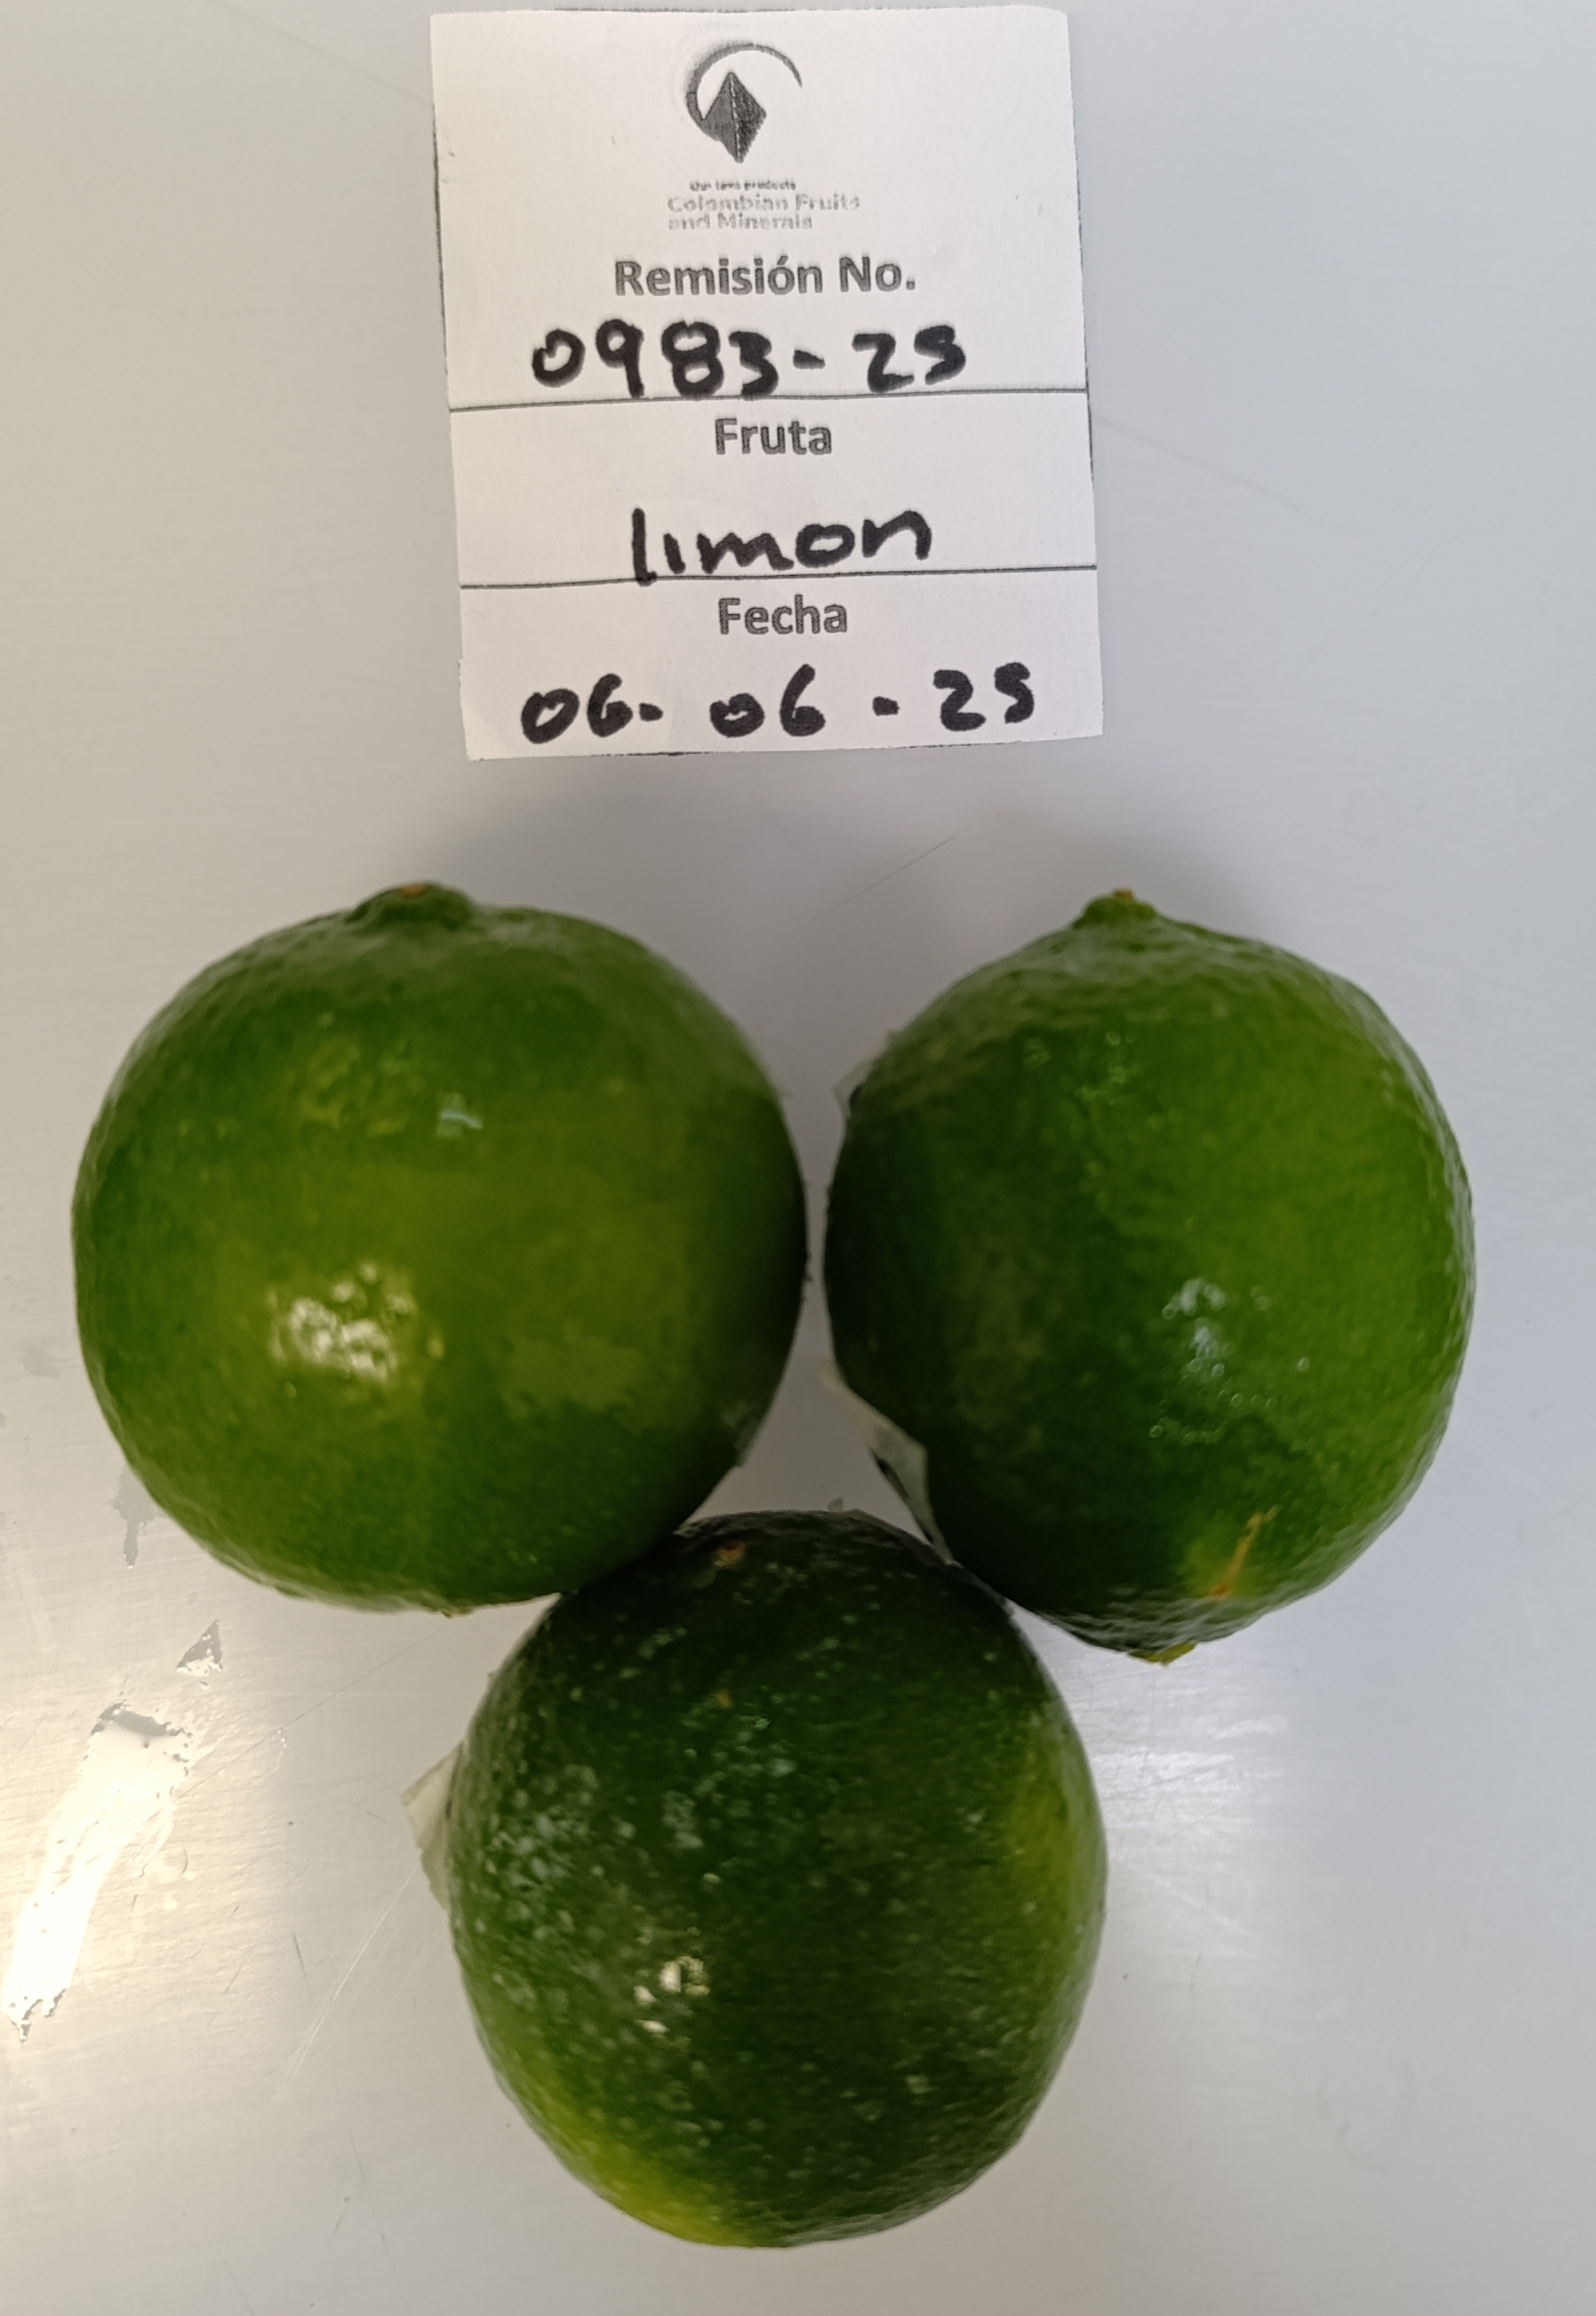 Colombian Fruits
and Minerals
Remisión No.
0983-25
Fruta
limon
Fecha
06-06-25